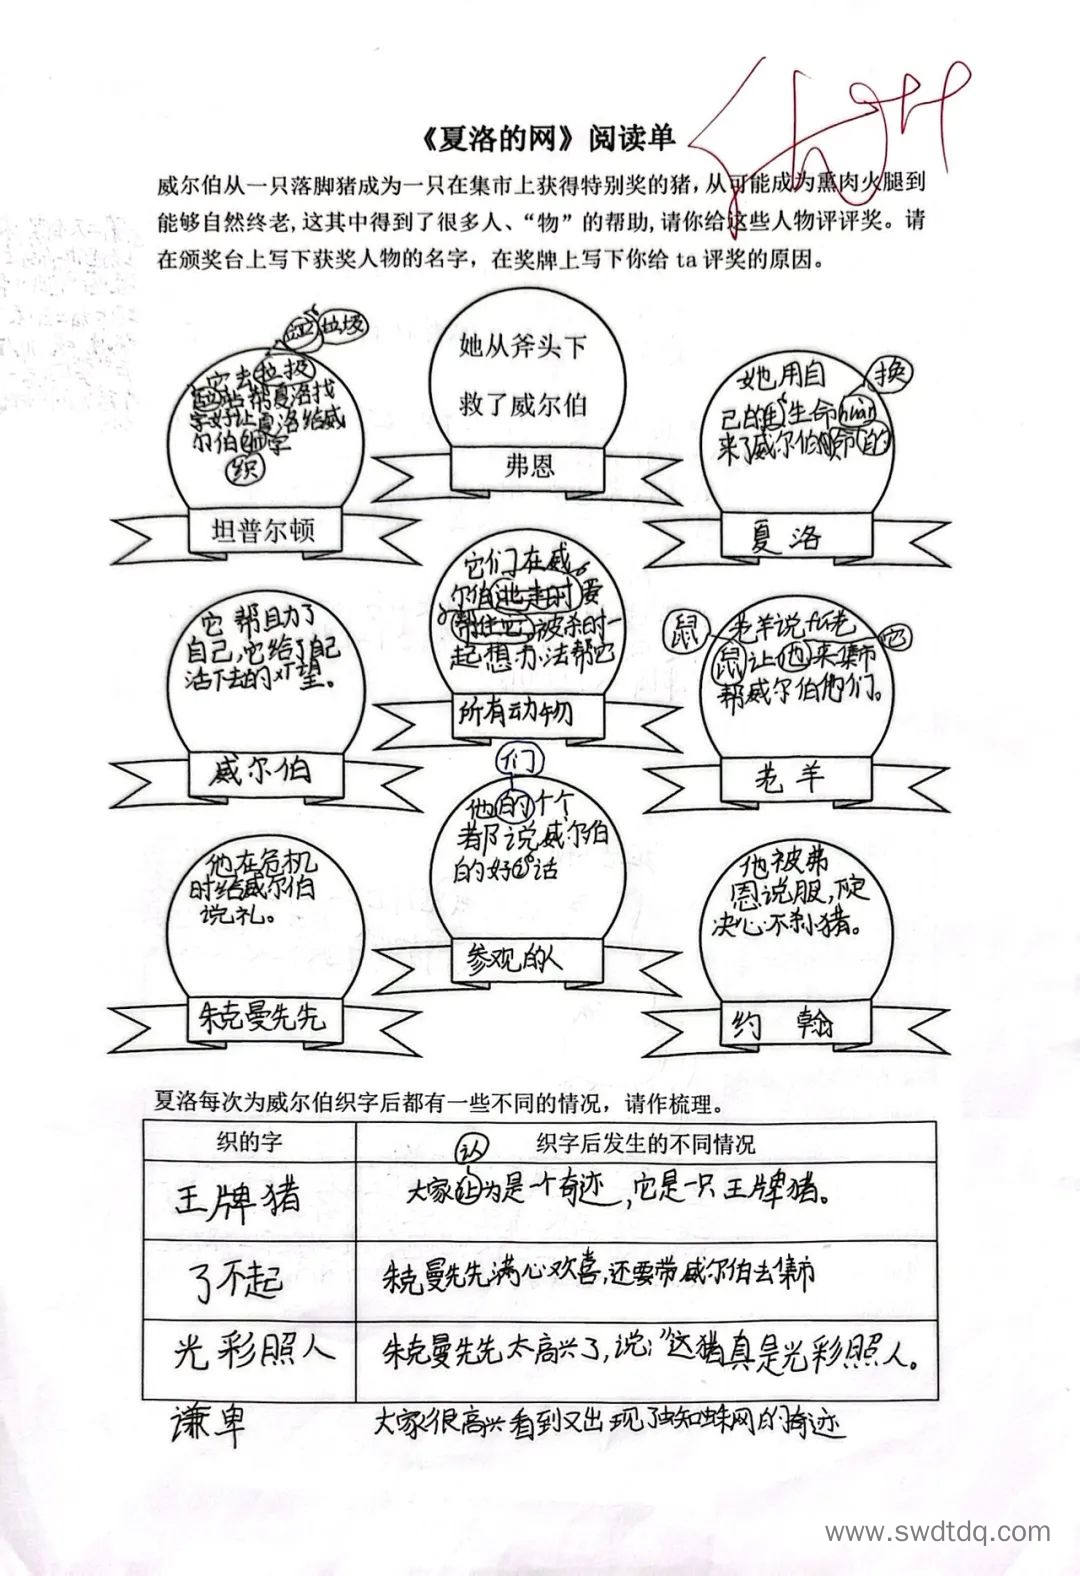 《夏洛的网》阅读单
威尔伯从一只落脚猪成为一只在集市上获得特别奖的猪，从可能成为熏肉火腿到
能够自然终老,这其中得到了很多人、“物”的帮助,请你给这些人物评评奖。请
在颁奖台上写下获奖人物的名字，在奖牌上写下你给 ta 评奖的原因。
垃圾
它去垃圾
站帮夏洛找
字好让夏洛给威
尔伯 字
织
坦普尔顿
她从斧头下
救了威尔伯
弗恩
换
她用自
己的 生命huan
来了威尔伯 命的
夏洛
它帮助了
自己,它给了自己
活下去的 望。
威尔伯
它们在威
尔伯逃走时 要
帮住它,被杀时一
起想办法帮它
所有动物
鼠
它
老羊说 老
鼠让他来集市
帮威尔伯他们。
老羊
他在危机
时给威尔伯
说礼。
朱克曼先先
们
他的个个
都说威尔伯
的好 话
参观的人
他被弗
恩说服,定
决心不杀小猪。
约翰
夏洛每次为威尔伯织字后都有一些不同的情况，请作梳理。
织的字 织字后发生的不同情况
认
王牌猪 大家 为是一个奇迹,它是一只王牌猪。
了不起 朱克曼先先满心欢喜,还要带威尔伯去集市
光彩照人 朱克曼先先太高兴了,说:“这猪真是光彩照人。
谦卑 大家很高兴看到又出现了蜘蛛网的奇迹
www.swdtdq.com